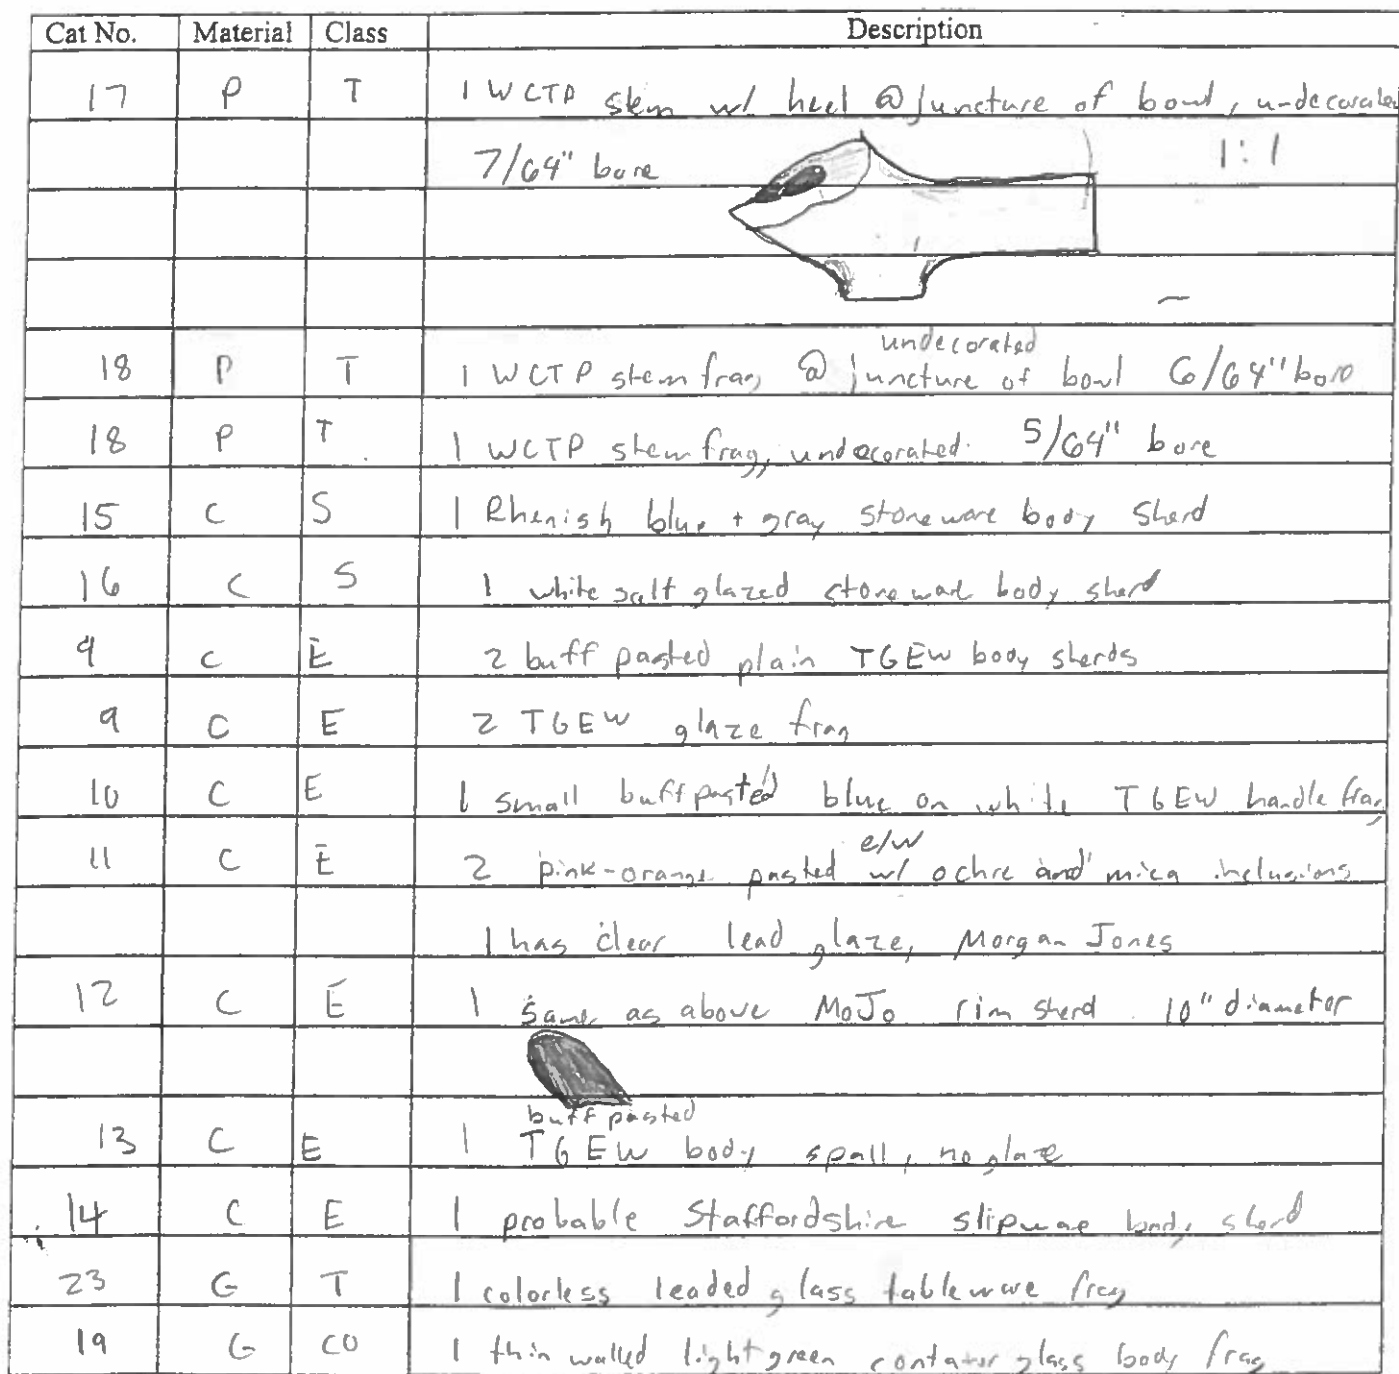 Cat No. Material Class Description
17 P T 1 WCTP stem w/ heel @ juncture of bowl, undecorated
7/64" bore 1:1
18 P T 1 WCTP stem frag @ juncture of bowl undecorated 6/64" bore
18 P T 1 WCTP stem frag, undecorated. 5/64" bore
15 C S 1 Rhenish blue + gray stoneware body sherd
16 C S 1 white salt glazed stoneware body sherd
9 C E 2 buff pasted plain TGEW body sherds
9 C E 2 TGEW glaze frag
10 C E 1 small buff pasted blue on white TGEW handle frag
11 C E 2 pink-orange pasted e/w w/ ochre and mica inclusions
1 has clear lead glaze, Morgan Jones
12 C E 1 same as above MoJo rim sherd 10" diameter
13 C E 1 buff pasted TGEW body spall, no glaze
14 C E 1 probable Staffordshire slipware body sherd
23 G T 1 colorless leaded glass tableware frag
19 G CO 1 thin walled light green glass body frag